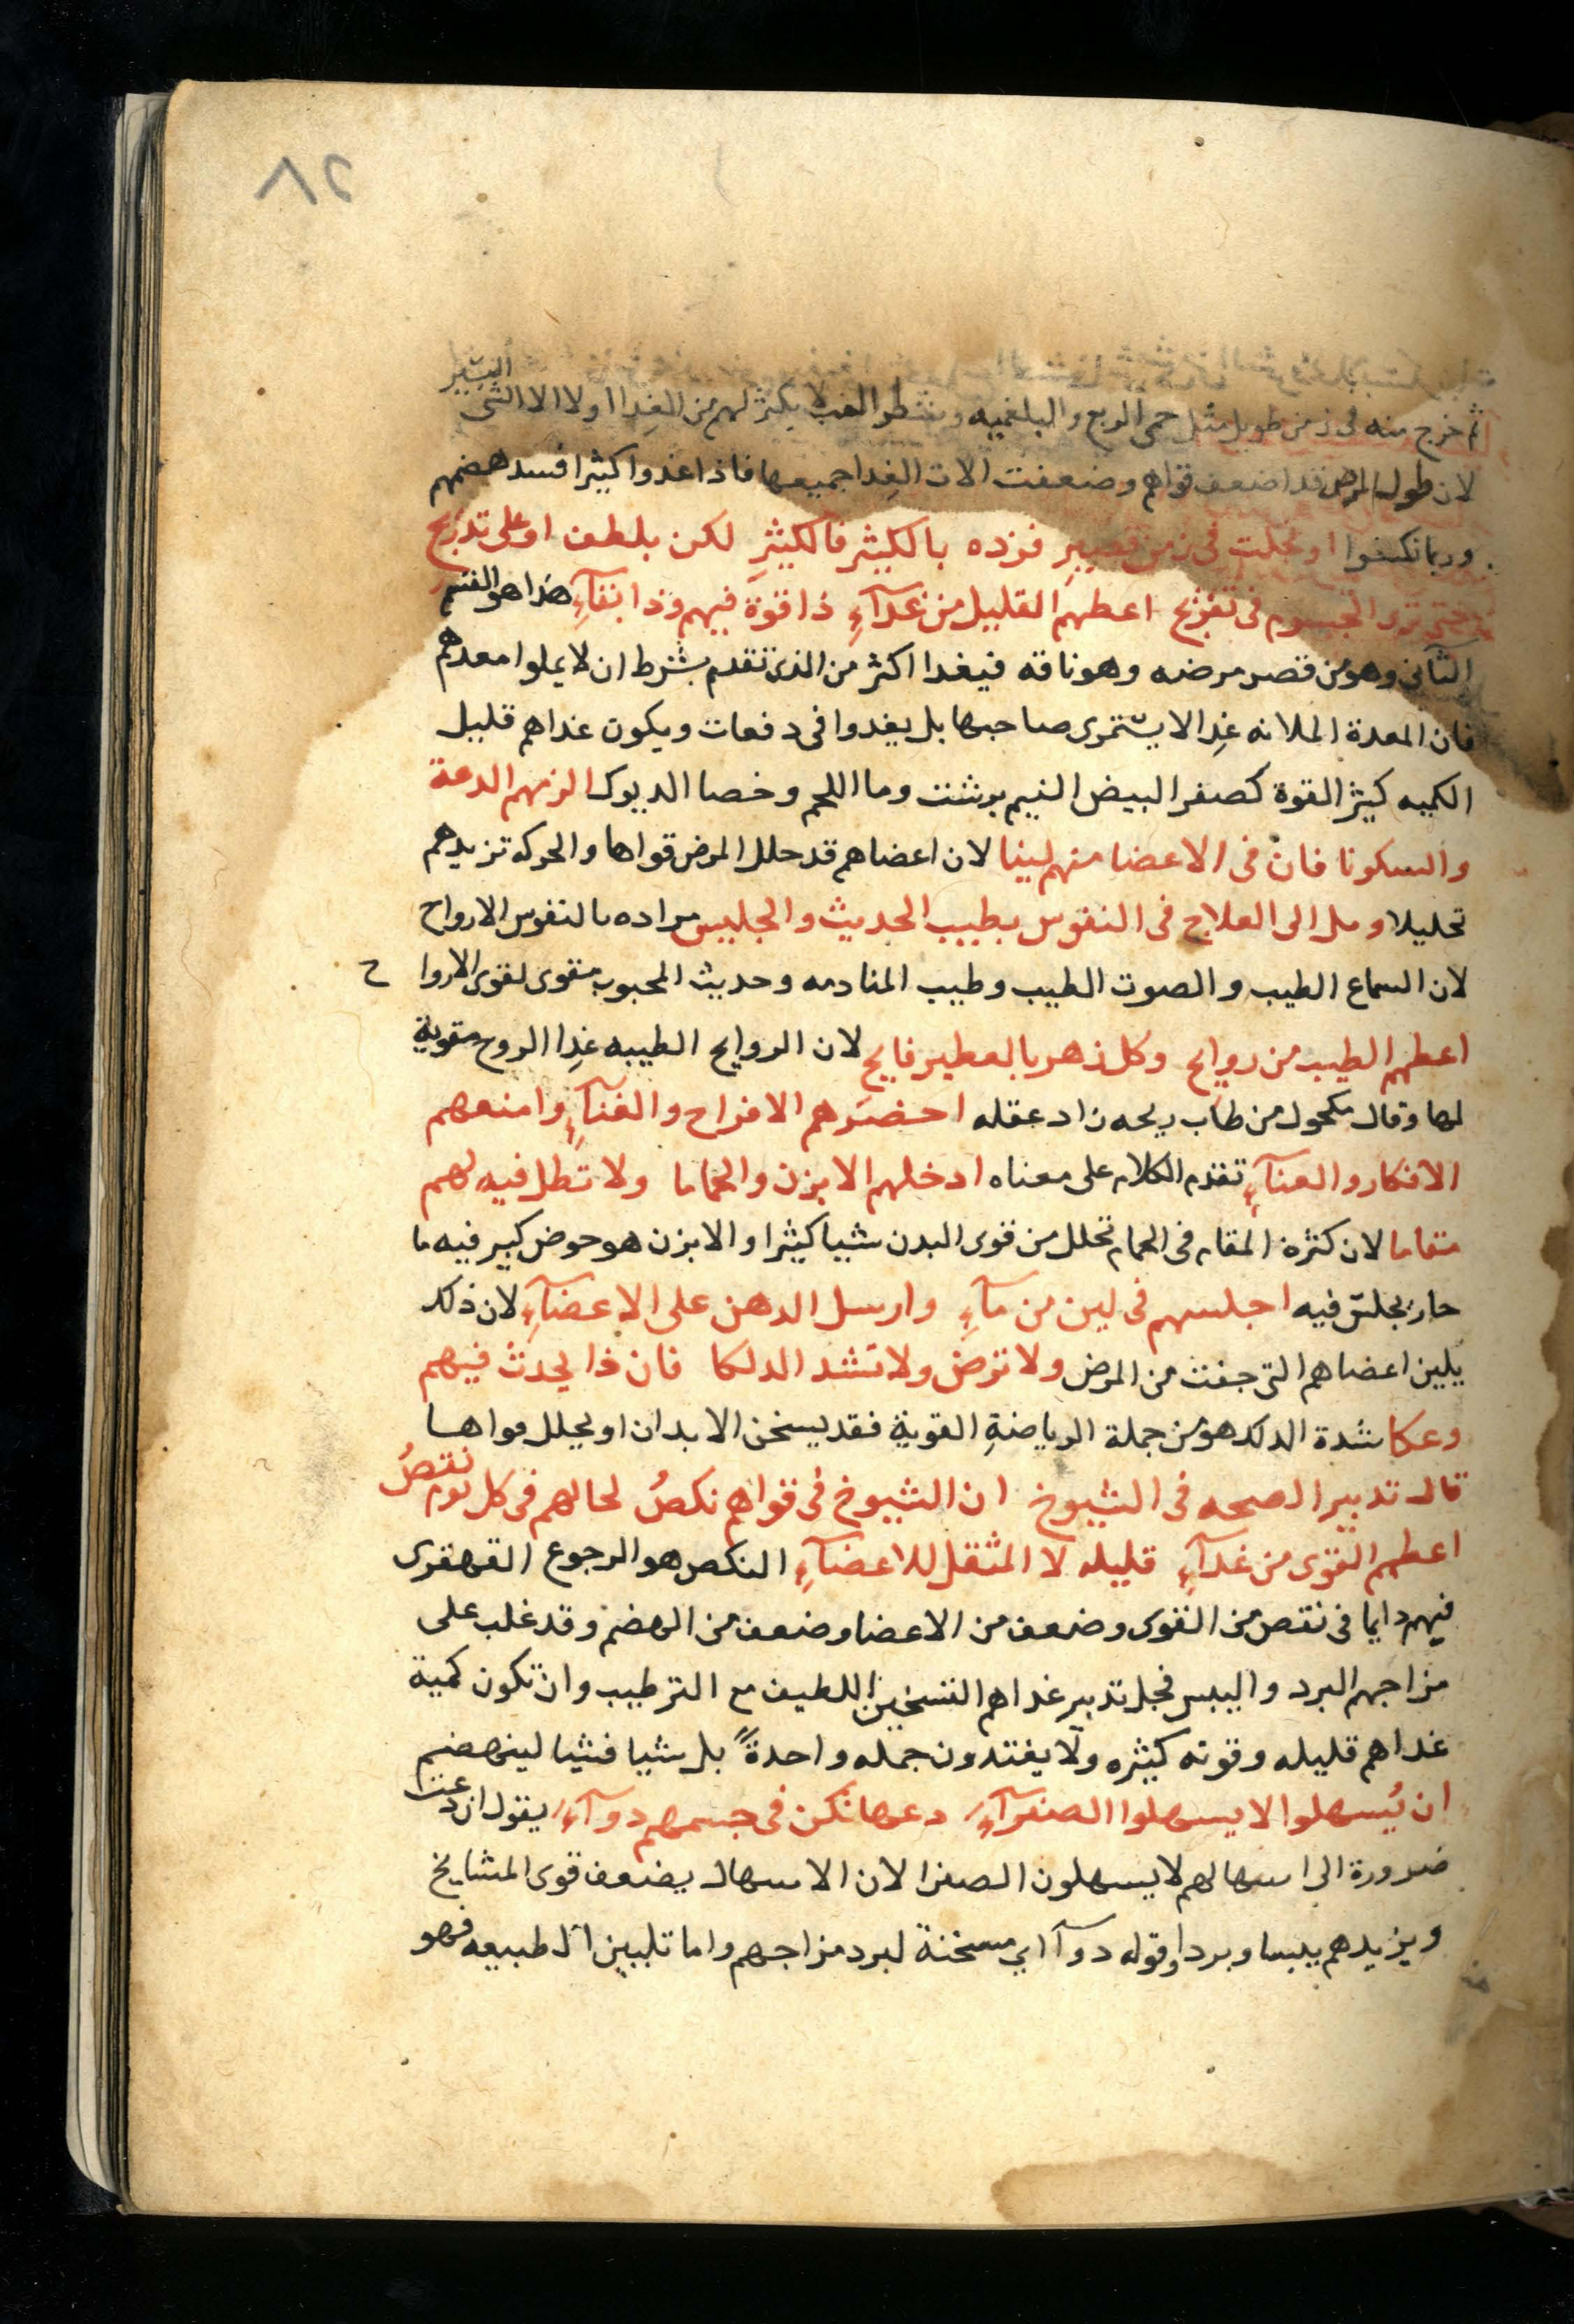 ٨٢
ثم خرج منه فى زمن طويل مثل حمى الربع والبلغميه وشطر الغب لا يكثر لهم من الغدا اولا الا الشى اليسير
لان طول المرض قد اضعف قواهم وضعفت الات الغدا جميعها فاذا اغذوا كثيرا فسد هضمهم
وربما نكسوا او نحلت فى زمن قصير فزده بالكثير فالكثير لكن بلطف او على تدريج
حتى ترى الجسوم فى تفريح اعطهم القليل من غدآءِ ذا قوة فيهم وذا بقآءِ هذا هو القسم
الثانى وهو من قصر مرضه وهو ناقه فيغدا اكثر من الذى تقدم بشرط ان لا يملوا معدهم
فان المعدة الملانه غدا لا يستمرى صاحبها بل يغدوا فى دفعات ويكون غداهم قليل
الكميه كثير القوة كصفر البيض النيم برشت وما اللحم وخصا الديوك الزمهم الدعة
والسكونا فان فى الاعضا منهم لينا لان اعضاهم قد حلل المرض قواها والحركه تزيدهم
تحليلا ومل الى العلاج فى النفوس بطيب الحديث والجليس مراده بالنفوس الارواح
لان السماع الطيب والصوت الطيب وطيب المنادمه وحديث المحبوب مقوى لقوى الاروا ح
اعطهم الطيب من روايح وكل زهر بالعطير فايح لان الروايح الطيبه غدا الروح مقوية
لها وقال مكحول من طاب ريحه زاد عقله احضرهم الافراح والغنآءِ وامنعهم
الافكار والعنآءِ تقدم الكلام على معناه ادخلهم الابزن والحماما ولا تطل فيه لهم
مقاما لان كثرة المقام فى الحمام تحلل من قوى البدن شيا كثيرا والابزن هو حوض كبير فيه ما
حار يجلس فيه اجلسهم فى لين من مآءِ وارسل الدهن على الاعضآءِ لان ذلك
يلين اعضاهم التى جفت من المرض ولا ترض ولا تشد الدلكا فان ذا يحدث فيهم
وعكا شدة الدلك هو من جملة الرياضةِ القوية فقد يسخن الابدان او يحلل قواها
قال تدبير الصحه فى الشيوخ ان الشيوخ فى قواهم نكصُ لحالهم فى كل يوم نقصُ
اعطهم القوى من غدآءِ قليله لا المثقل للاعضآءِ النكص هو الرجوع القهقرى
فيهم دايما فى نقص من القوى وضعف من الاعضا وضعف من الهضم وقد غلب على
مزاجهم البرد واليبس فجل تدبير غداهم التسخين اللطيف مع الترطيب وان تكون كمية
غداهم قليله وقوته كثيره ولا يغتدون جمله واحدةً بل شيا فشيا لينهضم
ان يُسهلوا لا يسهلوا الصفرآءِ دعها تكن فى جسمهم دوآءِ يقول ان دعت
ضرورة الى اسهالهم لا يسهلون الصفرا لان الاسهال يضعف قوى المشايخ
ويزيدهم يبسا وبردا وقوله دوآ اي مسخنة لبرد مزاجهم واما تليين الطبيعه فهو